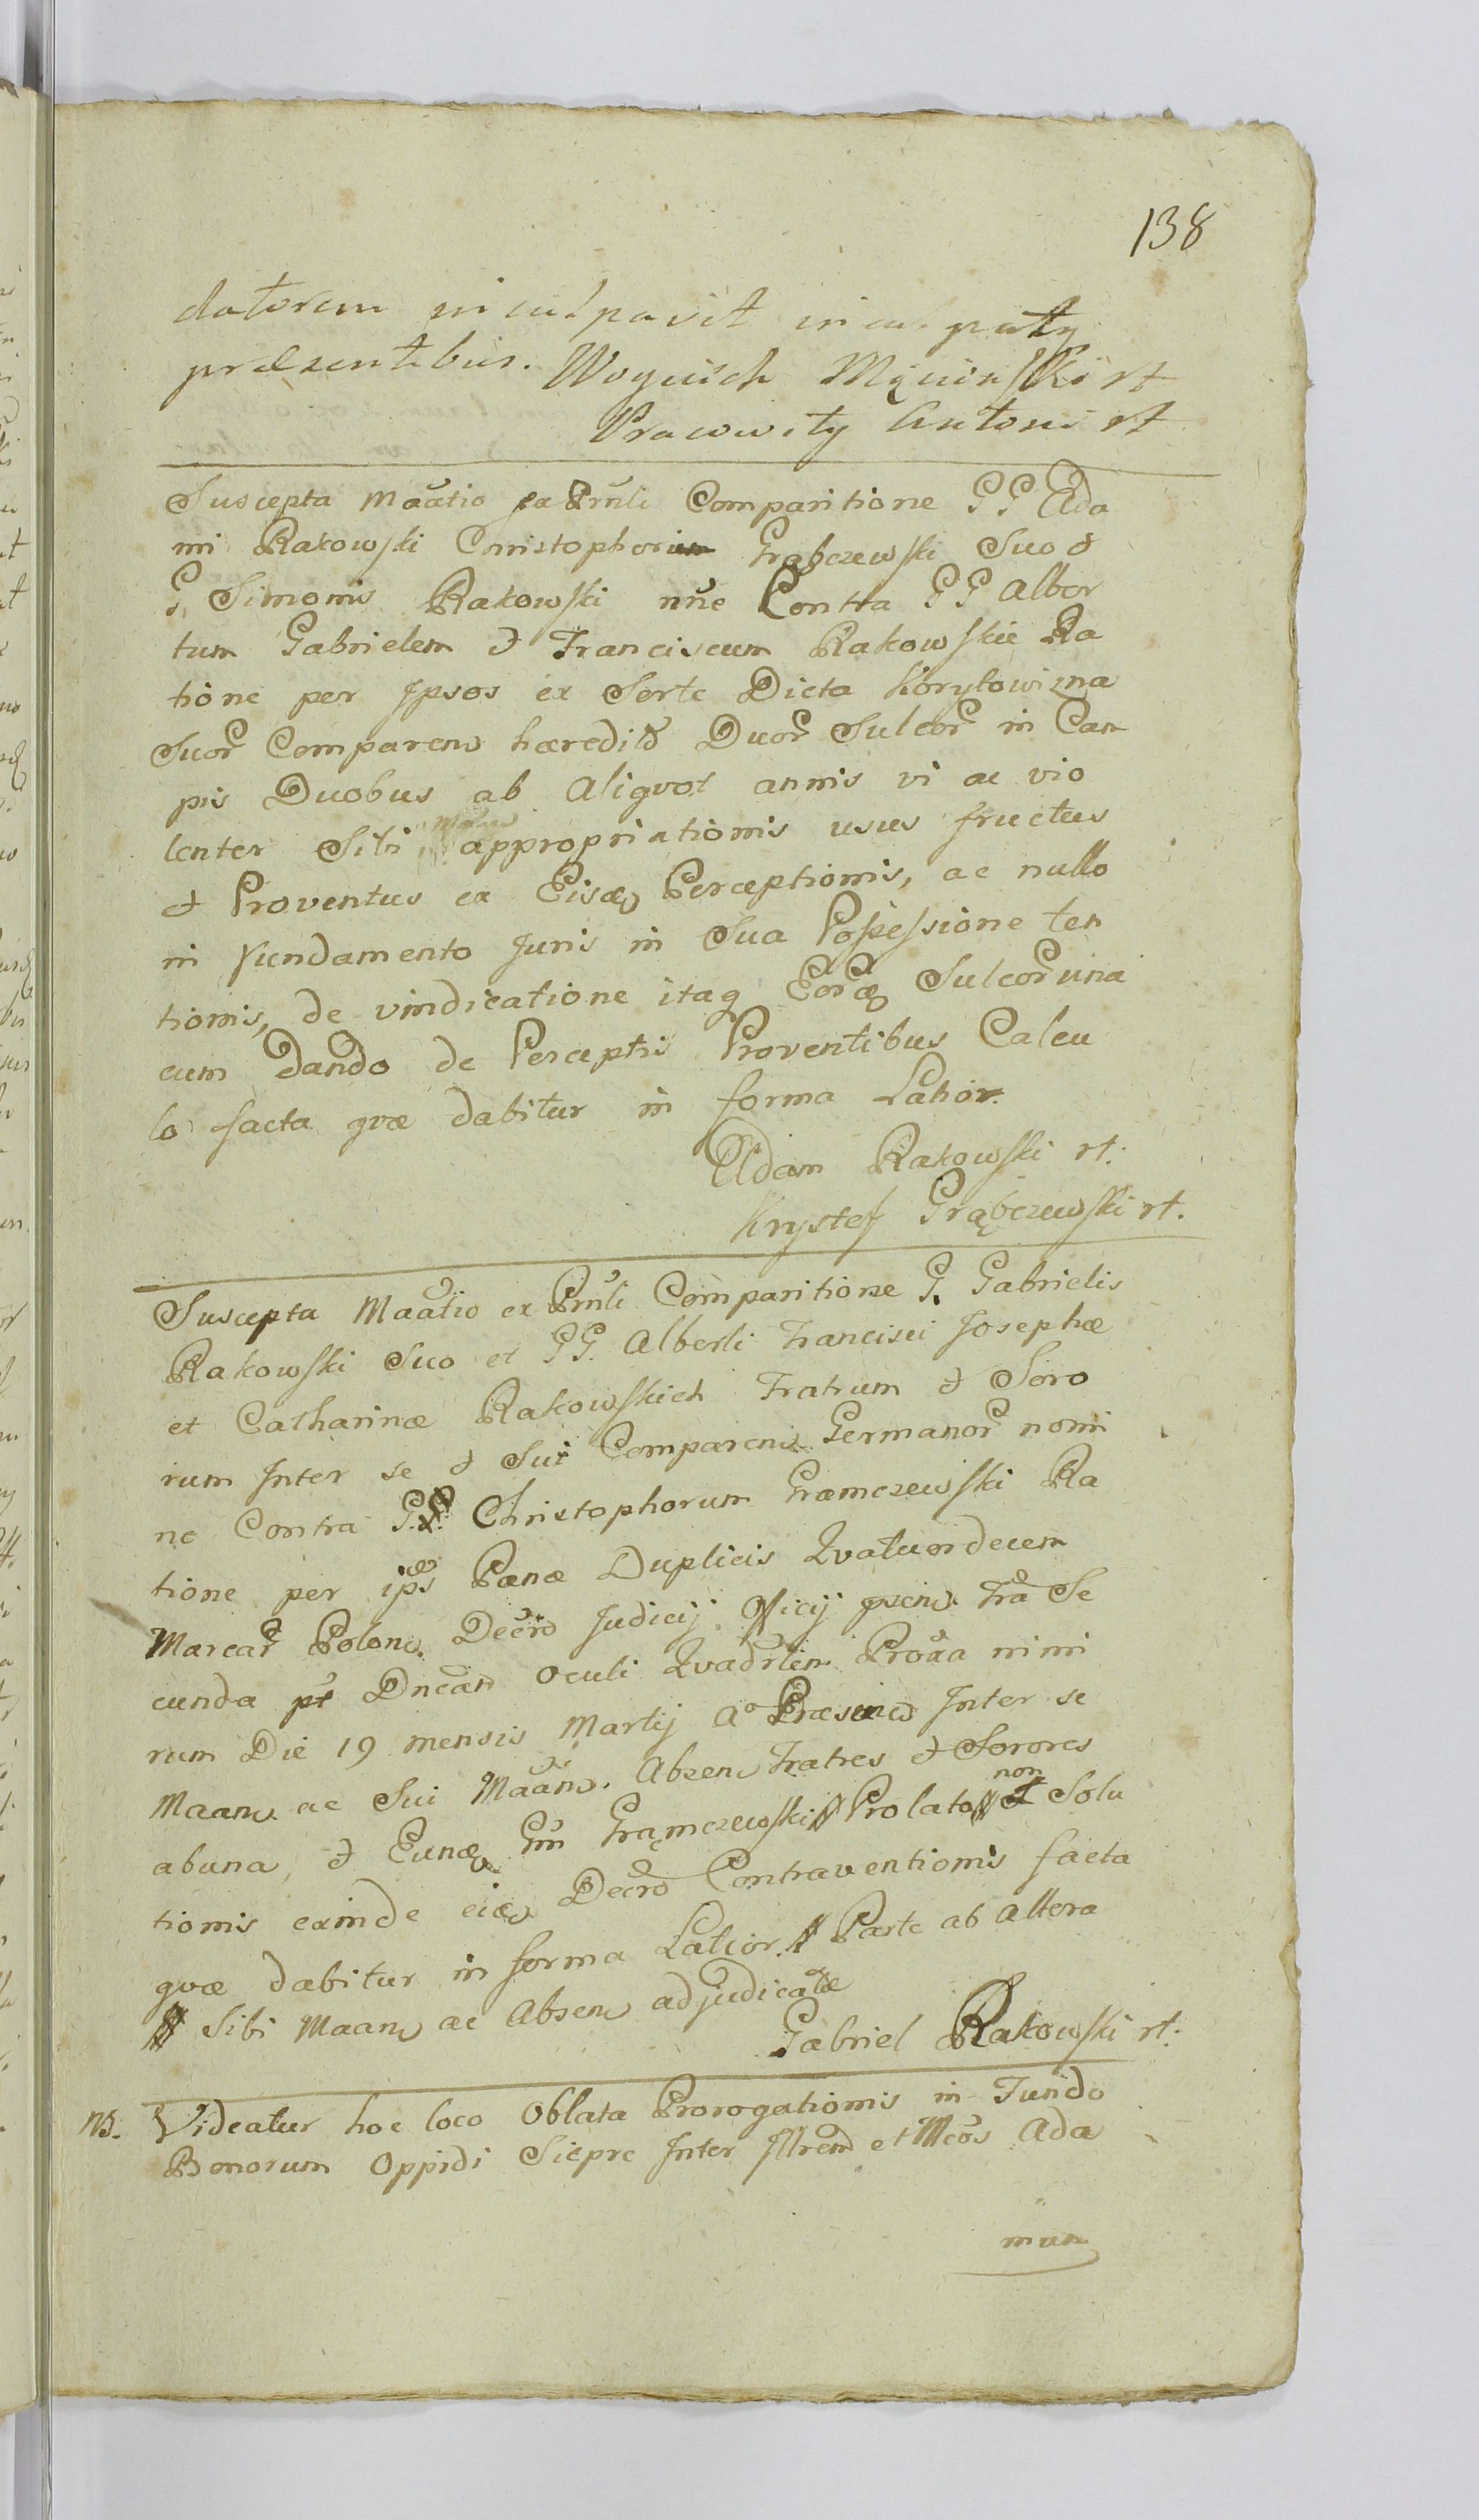 138
datorem inculpavit inculpaty
præsentibus. Woyciech Mąciński rt
Pracowity Antoni rt
Suscepta Maātio ex Prnli Comparitione G G Ada
mi Rakowski Christophori Grąbczewski Suo &
G. Simonis Rakowski nne Contra G G Alber
tum Gabrielem & Franciscum Rakowskie Ra
tione per Ipsos ex Sorte Dicta Korytowizna
Suor Comparen hæredit Duor Sulcor in Cam
pis Duobus ab Aliqvot annis vi ac vio
lenter Sibi appropriationis usus fructus
& Proventus ex Eisdē Perceptionis, ac nullo
in Fundamento Juris in Sua Possessione ten
tionis, de vindicatione itaq Eordē Sulcor una
cum Dando de Perceptis Proventibus Calcu
lo facta qvæ dabitur in forma Latior.
Adam Rakowski rt.
Krystof Grąbczewski rt.
Suscepta Maātio ex Prnli Comparitione G. Gabrielis
Rakowski Suo et GG. Alberti Francisci Josephæ
et Catharinæ Rakowskich Fratrum & Soro
rum Inter se & Sui Comparen Germanor nomi
ne Contra G. Christophorum Grąmczewski Ra
tione per ips Pænæ Duplicis Qvatuordecem
Marcar Polon. Decro Judicij Officij præn. Fra Se
cunda pt Dncam Oculi Qvadrlem Proxa nimi
rum Die 19 mensis Martij Aº Præsenė Inter se
Maan ac Sui Maan. Absen Fratres & Sorores
abuna, & Eundē Gm Grąmczewski // Prolato // non Solu
tionis exinde eidē Decro Contraventionis facta
qvæ dabitur in forma Latior. // Parte ab Altera
// Sibi Maan ac Absen adjudicatæ
Gabriel Rakowski rt.
NB. Videatur hoc loco Oblata Prorogationis in Fundo
Bonorum Oppidi Siepre Inter Illrem et Mcos Ada
mum